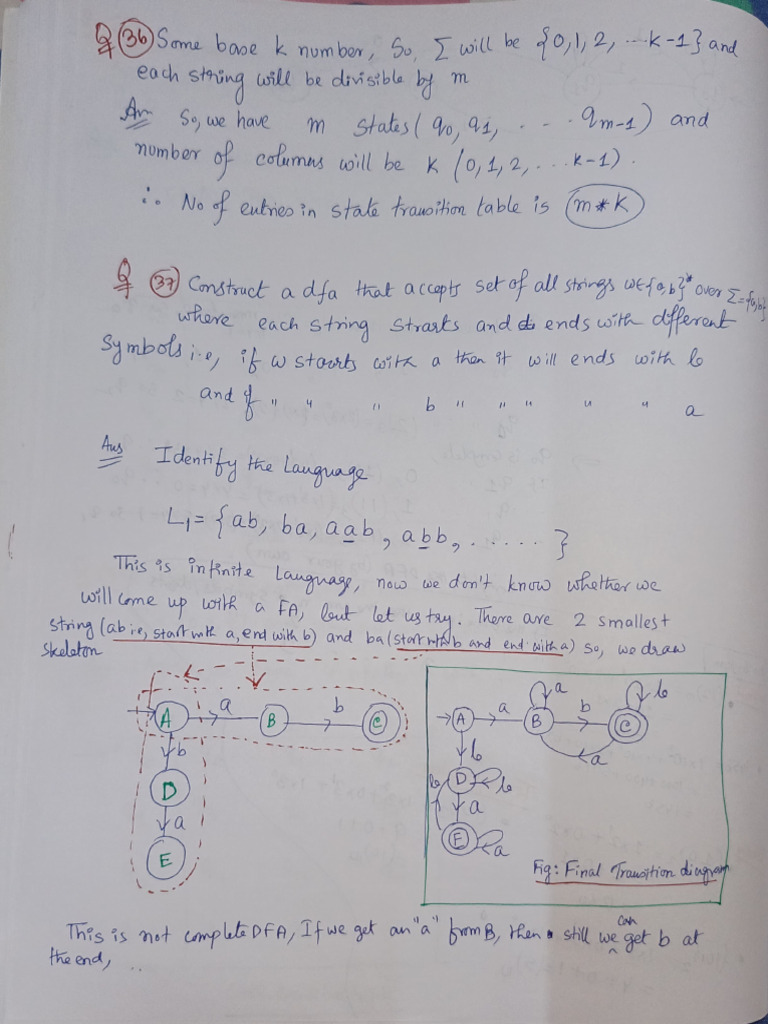 Q (36) Some base k number, So, Σ will be {0,1,2, ...k-1} and
each string will be divisible by m
Ans So, we have m states (q0, q1, . . . . qm-1) and
number of columns will be k (0,1,2, ... k-1).
∴ No of entries in state transition table is (m*k)
Q (37) Construct a dfa that accepts set of all strings w∈{a,b}* over Σ={a,b}
where each string strarts and ends with different
Symbols i.e, if w starts with a then it will ends with b
and if " " " b " " " " " a
Ans Identify the Language
L1 = {ab, ba, aab, abb, ..... }
This is infinite Language, now we don't know whether we
will come up with a FA, but let us try. There are 2 smallest
string (ab i.e, start with a, end with b) and ba (start with b and end with a) so, we draw
skeleton
A a B b C
b
D
a
E
A a B a b C b
a
b
D b
b a
E a
Fig: Final Transition diagram
This is not complete DFA, If we get an "a" from B, then still we can get b at
the end, ..